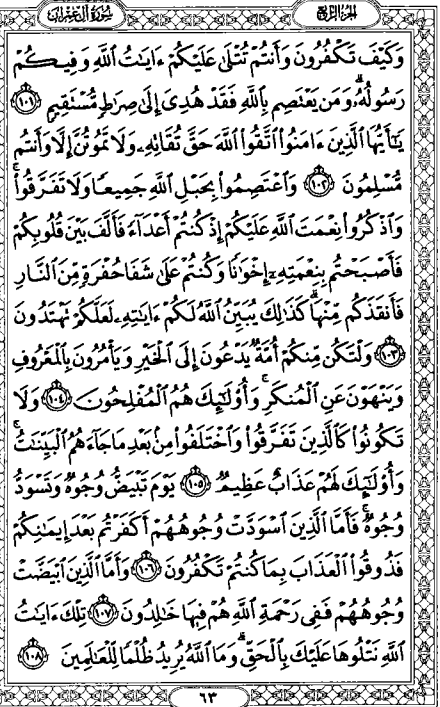 سُورَةُ آلِ عِمۡرَانَ الجُزءُ الرَّابِعُ
وَكَيۡفَ تَكۡفُرُونَ وَأَنتُمۡ تُتۡلَىٰ عَلَيۡكُمۡ ءَايَٰتُ ٱللَّهِ وَفِيكُمۡ
رَسُولُهُۥۗ وَمَن يَعۡتَصِم بِٱللَّهِ فَقَدۡ هُدِيَ إِلَىٰ صِرَٰطٖ مُّسۡتَقِيمٖ ١٠١
يَٰٓأَيُّهَا ٱلَّذِينَ ءَامَنُواْ ٱتَّقُواْ ٱللَّهَ حَقَّ تُقَاتِهِۦ وَلَا تَمُوتُنَّ إِلَّا وَأَنتُم
مُّسۡلِمُونَ ١٠٢ وَٱعۡتَصِمُواْ بِحَبۡلِ ٱللَّهِ جَمِيعٗا وَلَا تَفَرَّقُواْۚ
وَٱذۡكُرُواْ نِعۡمَتَ ٱللَّهِ عَلَيۡكُمۡ إِذۡ كُنتُمۡ أَعۡدَآءٗ فَأَلَّفَ بَيۡنَ قُلُوبِكُمۡ
فَأَصۡبَحۡتُم بِنِعۡمَتِهِۦٓ إِخۡوَٰنٗا وَكُنتُمۡ عَلَىٰ شَفَا حُفۡرَةٖ مِّنَ ٱلنَّارِ
فَأَنقَذَكُم مِّنۡهَاۗ كَذَٰلِكَ يُبَيِّنُ ٱللَّهُ لَكُمۡ ءَايَٰتِهِۦ لَعَلَّكُمۡ تَهۡتَدُونَ
١٠٣ وَلۡتَكُن مِّنكُمۡ أُمَّةٞ يَدۡعُونَ إِلَى ٱلۡخَيۡرِ وَيَأۡمُرُونَ بِٱلۡمَعۡرُوفِ
وَيَنۡهَوۡنَ عَنِ ٱلۡمُنكَرِۚ وَأُوْلَٰٓئِكَ هُمُ ٱلۡمُفۡلِحُونَ ١٠٤ وَلَا
تَكُونُواْ كَٱلَّذِينَ تَفَرَّقُواْ وَٱخۡتَلَفُواْ مِنۢ بَعۡدِ مَا جَآءَهُمُ ٱلۡبَيِّنَٰتُۚ
وَأُوْلَٰٓئِكَ لَهُمۡ عَذَابٌ عَظِيمٞ ١٠٥ يَوۡمَ تَبۡيَضُّ وُجُوهٞ وَتَسۡوَدُّ
وُجُوهٞۚ فَأَمَّا ٱلَّذِينَ ٱسۡوَدَّتۡ وُجُوهُهُمۡ أَكَفَرۡتُم بَعۡدَ إِيمَٰنِكُمۡ
فَذُوقُواْ ٱلۡعَذَابَ بِمَا كُنتُمۡ تَكۡفُرُونَ ١٠٦ وَأَمَّا ٱلَّذِينَ ٱبۡيَضَّتۡ
وُجُوهُهُمۡ فَفِي رَحۡمَةِ ٱللَّهِ هُمۡ فِيهَا خَٰلِدُونَ ١٠٧ تِلۡكَ ءَايَٰتُ
ٱللَّهِ نَتۡلُوهَا عَلَيۡكَ بِٱلۡحَقِّۗ وَمَا ٱللَّهُ يُرِيدُ ظُلۡمٗا لِّلۡعَٰلَمِينَ ١٠٨
٦٣